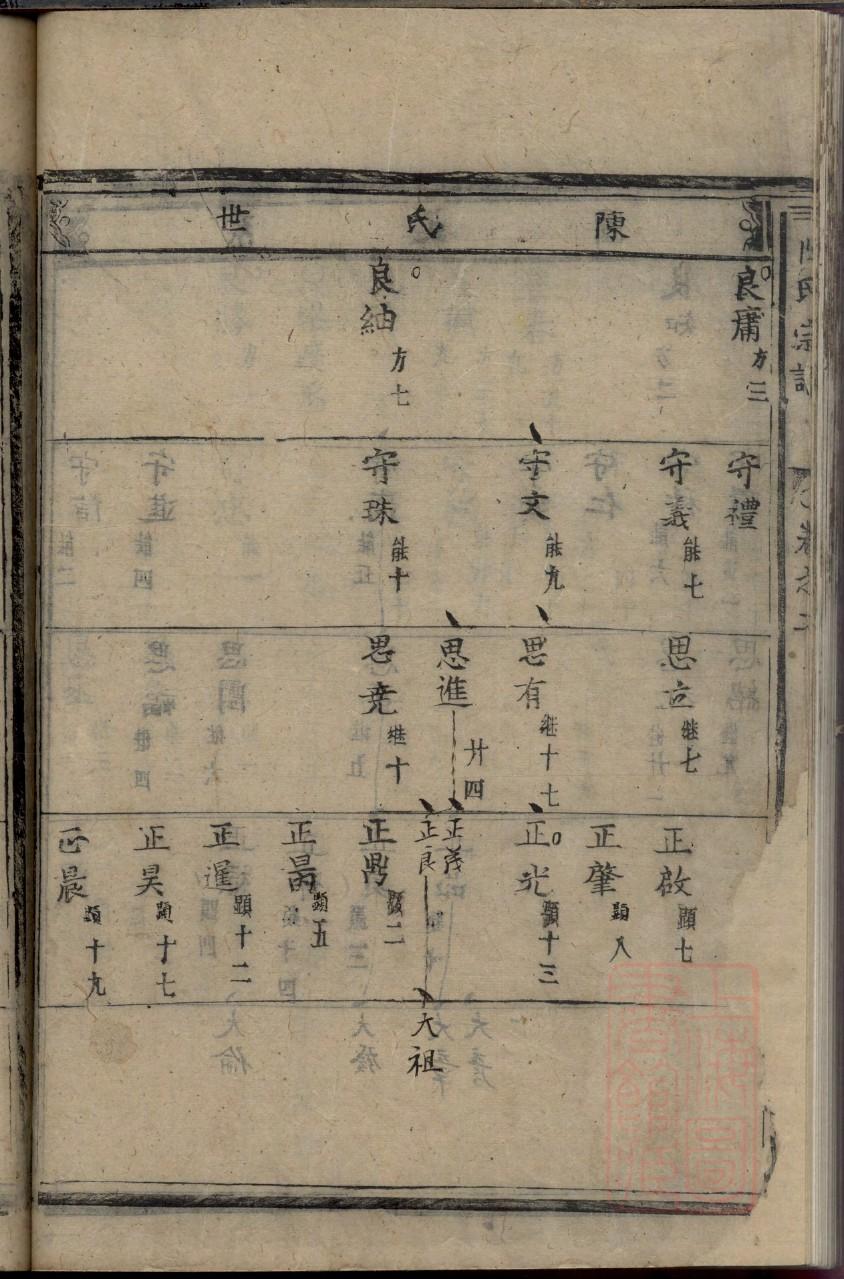 陳氏世
良庸 方三
良紬 方七
守禮
守義 能七
守文 能九
守珠 能十
思立 継七
思有 継十七
思進 廿四
思堯 継十
正啟 顕七
正肇 顕八
正光 顕十三
正茂
正良
正鼎 顕二
正暠 顕五
正暹 顕十二
正昊 顕十七
正晨 顕十九
大祖